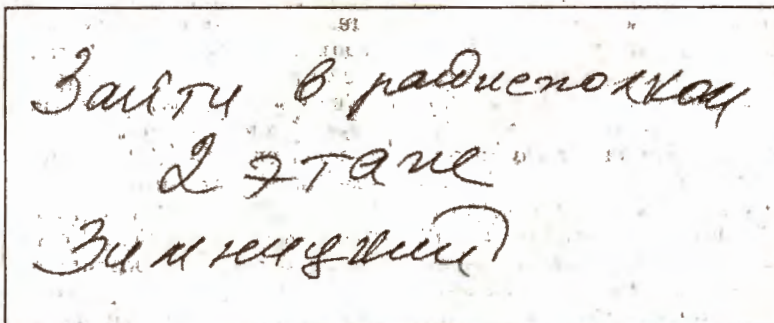 Зайти в райисполком
2 этаже
Зимницкий